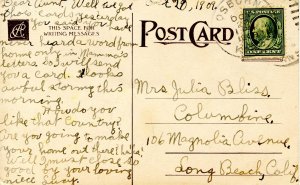 Dear Aunt. Well as got
Oct 20, 1909.
this card yesterday
THIS SPACE FOR
WRITING MESSAGES
POST CARD
U.S. POSTAGE
ONE CENT
never heard a word from
home only in Mamma's
letters so I will send
you a card. It looks
awful stormy this
morning.
How do you
like that country?
Are you going to make
your home out there?
Well I must close so
good by your loving
niece
Mrs Julia Bliss,
Columbine
106 Magnolia Avenue,
Long Beach, Calif.